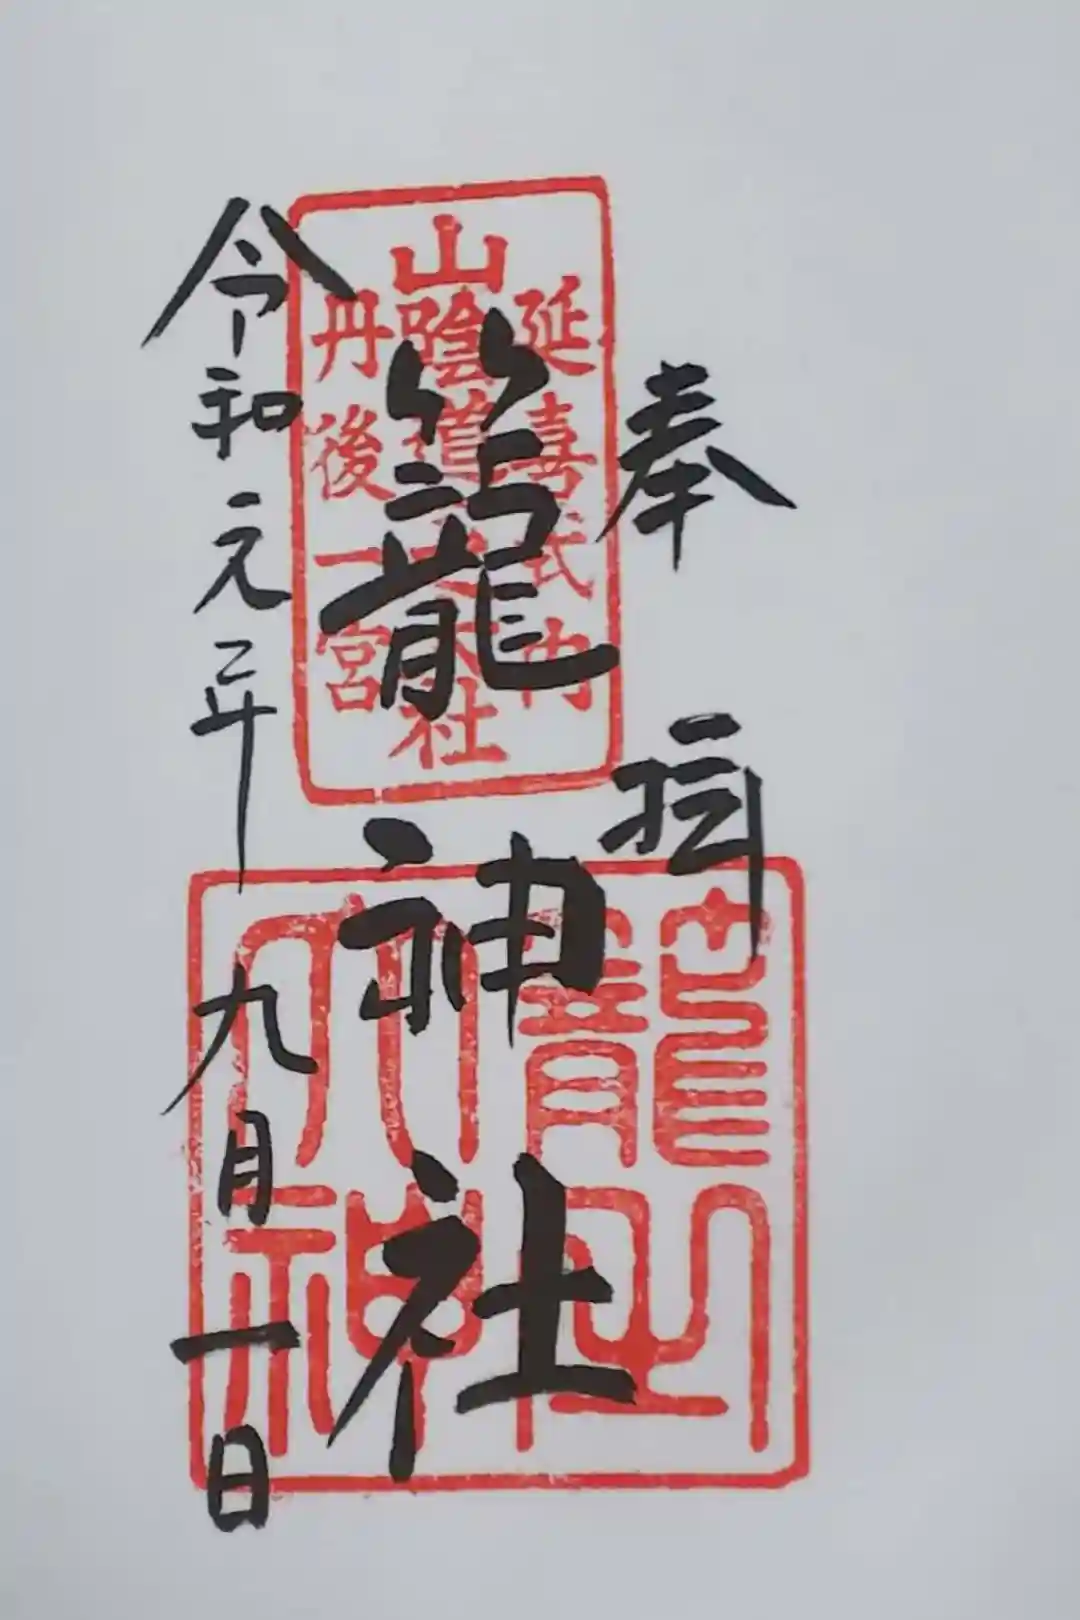 奉拝
延喜式内
山陰道之大社
丹後一宮
籠神社
籠之大神
令和元年九月一日